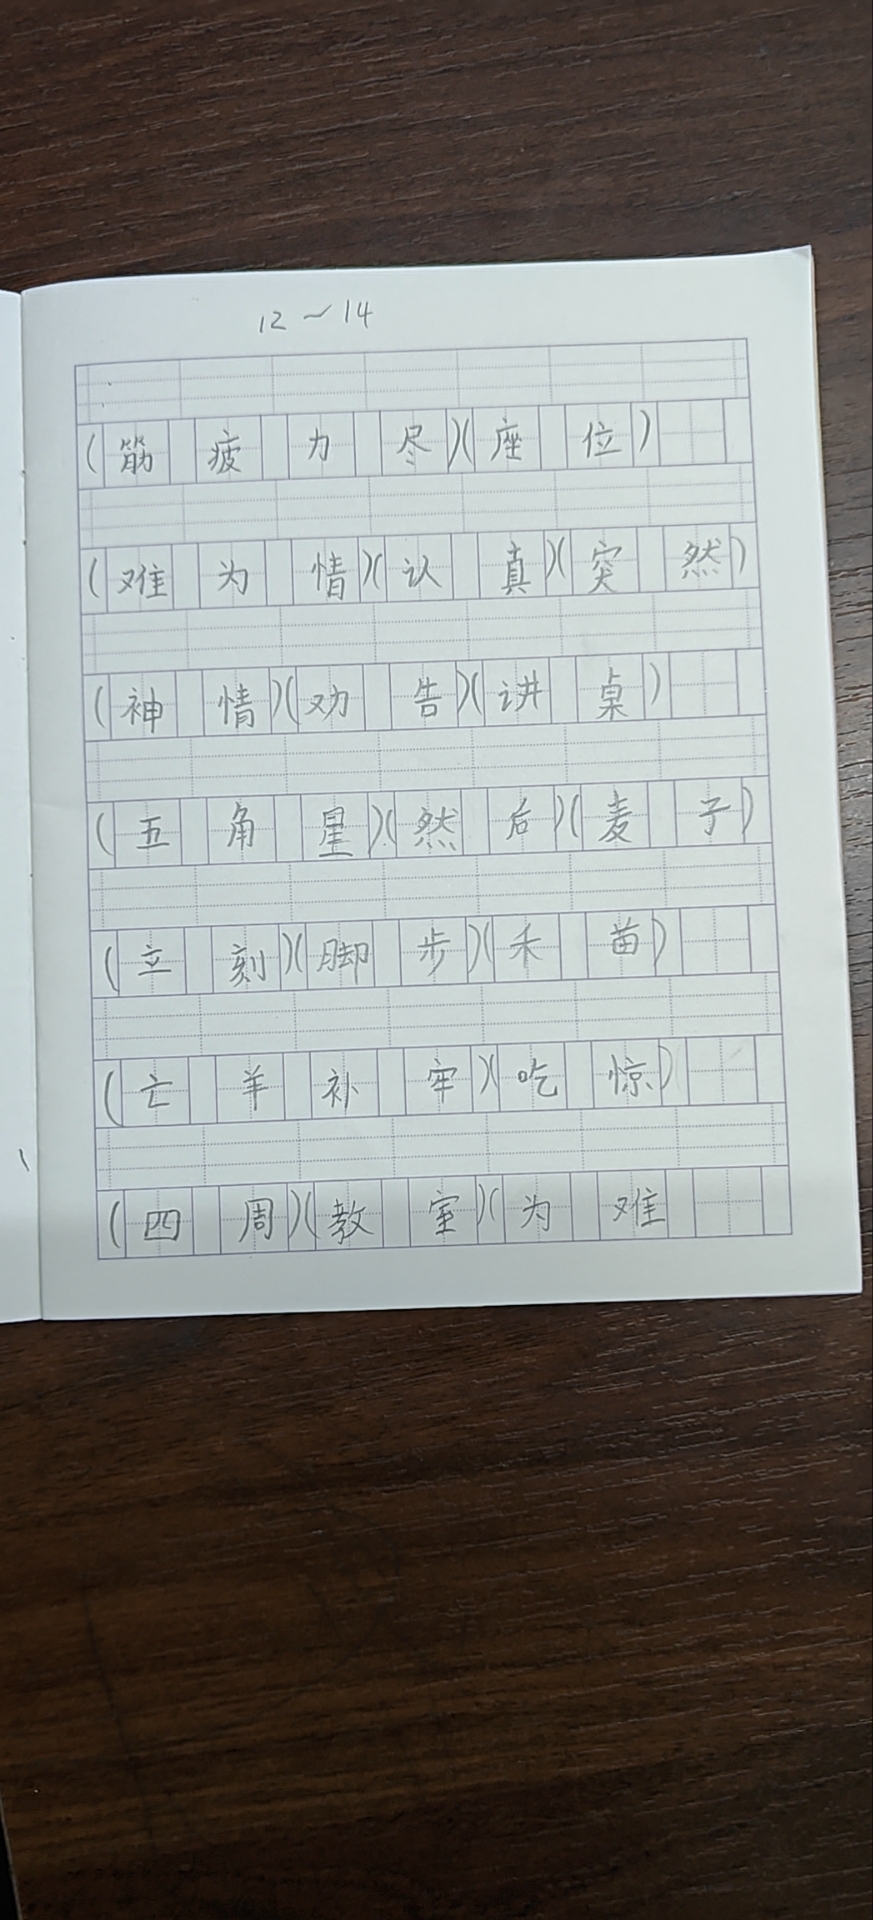 12~14
(筋疲力尽)(座位)
(难为情)(认真)(突然)
(神情)(劝告)(讲桌)
(五角星)(然后)(麦子)
(立刻)(脚步)(禾苗)
(亡羊补牢)(吃惊)
(四周)(教室)(为难